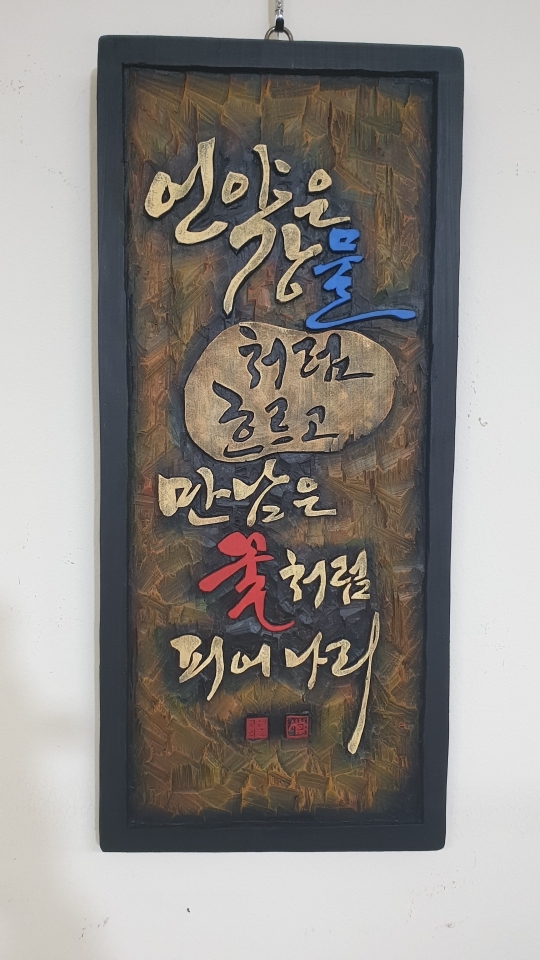 언약은
강물
처럼
흐르고
만남은
꽃처럼
피어나리